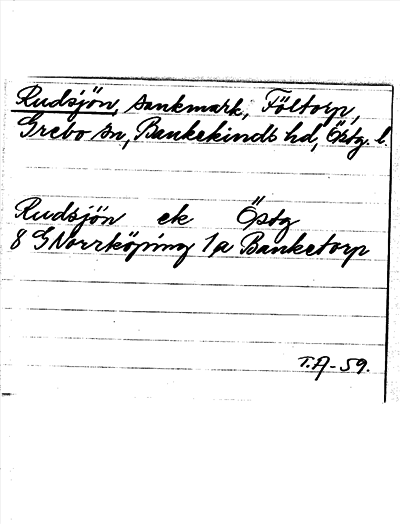 Rudsjön, sankmark, Föltorp,
Grebo sn, Bankekinds hd, Östg. l.
Rudsjön ek Östg
8 G Norrköping 1a Banketorp
T.A-59.